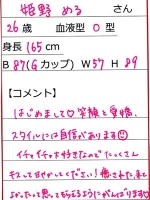 姫野 める さん
26歳 血液型 O型
身長 165cm
B 87(Gカップ) W57 H 89
【コメント】
はじめまして♡笑顔と愛嬌、
スタイルには自信があります😊
イチャイチャ大好きなのでたっくさん
キスして甘やかしてください！癒された、来て
よかったって思ってもらえるようにがんばります♡